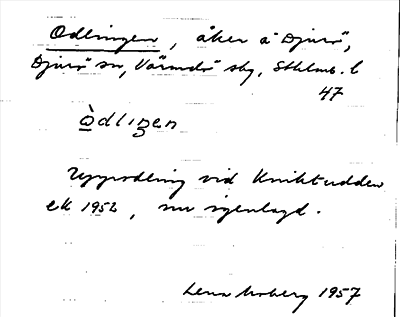 Odlingen, åker å Djurö,
Djurö sn, Värmdö sbg, Sthlms. l
47
òdlιŋen
Uppodling vid Kniktudden
ek 1952, nu igenlagd.
Lena Moberg 1957